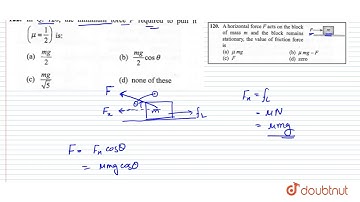 the minimum force F required to pull it
(μ = 1/2) is:
(a) mg/2
(b) mg/2 cos θ
(c) mg/√5
(d) none of these
120. A horizontal force F acts on the block
of mass m and the block remains
stationary, the value of friction force
is
(a) μ mg
(b) μ mg – F
(c) F
(d) zero
F
θ
Fx
m
fL
Fx = fL
= μN
= μmg
F = Fx cosθ
= μmg cosθ
doubtnut